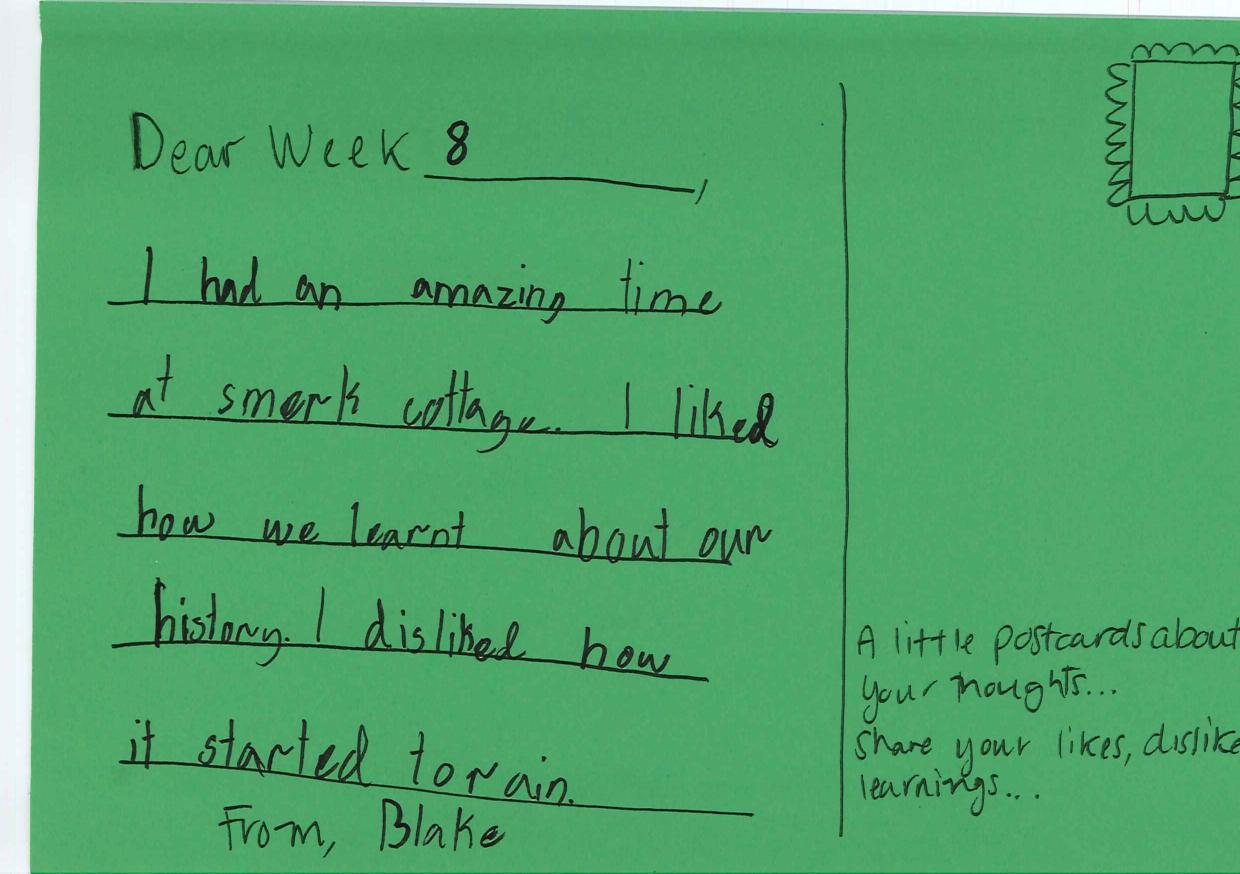 Dear Week 8,
I had an amazing time
at smerk cottage. I liked
how we learnt about our
history. I disliked how
it started to rain.
From, Blake
A little postcards about
your thoughts...
Share your likes, dislike
learnings...